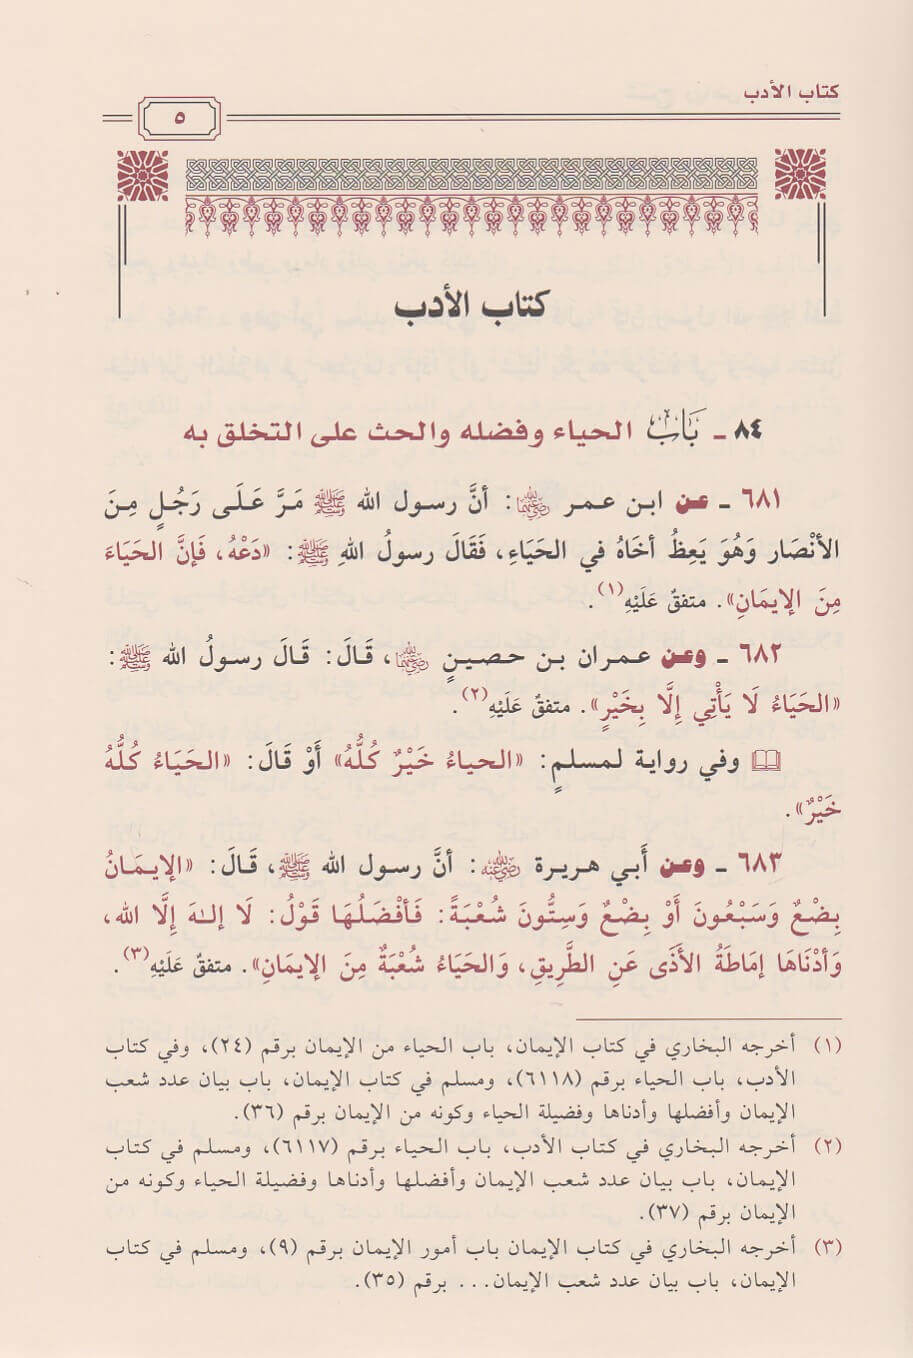 كتاب الأدب
٥
كتاب الأدب
٨٤ ـ بَابُ الحياء وفضله والحث على التخلق به
٦٨١ ـ عن ابن عمر رضي الله عنهما: أنَّ رسول الله ﷺ مَرَّ عَلَى رَجُلٍ مِنَ
الأنْصَار وَهُوَ يَعِظُ أخَاهُ في الحَيَاءِ، فَقَالَ رسولُ اللهِ ﷺ: «دَعْهُ، فَإنَّ الحَيَاءَ
مِنَ الإيمَانِ». متفقٌ عَلَيْهِ(١).
٦٨٢ ـ وعن عمران بن حصينٍ رضي الله عنهما، قَالَ: قَالَ رسولُ الله ﷺ:
«الحَيَاءُ لَا يَأْتِي إِلَّا بِخَيْرٍ». متفقٌ عَلَيْهِ(٢).
وفي رواية لمسلمٍ: «الحياءُ خَيْرٌ كُلُّهُ» أَوْ قَالَ: «الحَيَاءُ كُلُّهُ
خَيْرٌ».
٦٨٣ ـ وعن أَبي هريرة رضي الله عنه: أنَّ رسول الله ﷺ، قَالَ: «الإيمَانُ
بِضْعٌ وَسَبْعُونَ أَوْ بِضْعٌ وَسِتُّونَ شُعْبَةً: فَأفْضَلُهَا قَوْلُ: لَا إلهَ إِلَّا الله،
وَأدْنَاهَا إمَاطَةُ الأذَى عَنِ الطَّرِيقِ، وَالحَيَاءُ شُعْبَةٌ مِنَ الإيمَانِ». متفقٌ عَلَيْهِ(٣).
(١) أخرجه البخاري في كتاب الإيمان، باب الحياء من الإيمان برقم (٢٤)، وفي كتاب
الأدب، باب الحياء برقم (٦١١٨)، ومسلم في كتاب الإيمان، باب بيان عدد شعب
الإيمان وأفضلها وأدناها وفضيلة الحياء وكونه من الإيمان برقم (٣٦).
(٢) أخرجه البخاري في كتاب الأدب، باب الحياء برقم (٦١١٧)، ومسلم في كتاب
الإيمان، باب بيان عدد شعب الإيمان وأفضلها وأدناها وفضيلة الحياء وكونه من
الإيمان برقم (٣٧).
(٣) أخرجه البخاري في كتاب الإيمان باب أمور الإيمان برقم (٩)، ومسلم في كتاب
الإيمان، باب بيان عدد شعب الإيمان... برقم (٣٥).